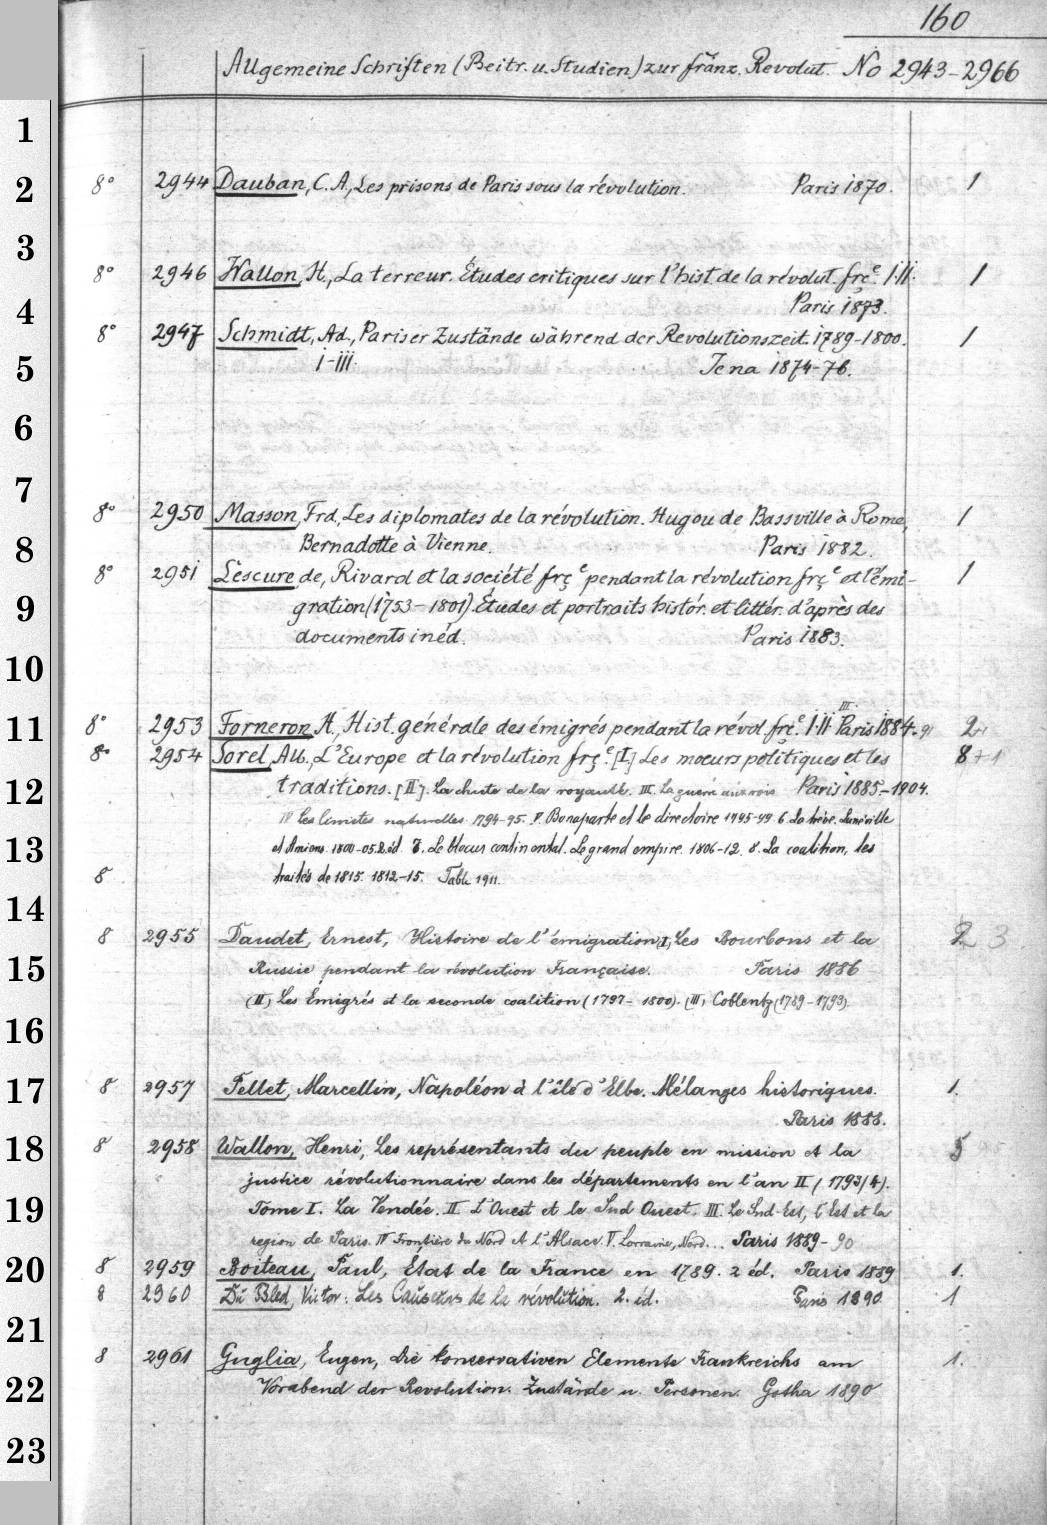 160
Allgemeine Schriften (Beitr. u. Studien) zur franz. Revolut. No 2943-2966
1
2
8° 2944 Dauban, C. A., Les prisons de Paris sous la révolution. Paris 1870. 1
3
8° 2946 Wallon, H., La terreur. Études critiques sur l'hist. de la révolut. frçe. I.II. 1
4
Paris 1873.
8° 2947 Schmidt, Ad., Pariser Zustände während der Revolutionszeit. 1789-1800. 1
5
I-III. Jena 1874-76.
6
7
8° 2950 Masson, Frd., Les diplomates de la révolution. Hugou de Bassville à Rome, 1
8
Bernadotte à Vienne. Paris 1882.
8° 2951 Lescure, de, Rivarol et la société frçe pendant la révolution frçe et l'émi- 1
9
gration (1753-1801). Études et portraits histór. et littér. d'après des
documents inéd. Paris 1883.
10
III.
11
8° 2953 Forneron, H., Hist. générale des émigrés pendant la révol. frçe. I.II Paris 1884-91 2+1
8° 2954 Sorel, Alb., L'Europe et la révolution frçe. [I] Les moeurs politiques et les 8+1
12
traditions. [II]. La chute de la royauté. III. La guerre aux rois Paris 1885-1904.
IV Les limites naturelles 1794-95. V. Bonaparte et le directoire 1795-99. 6. La trève. Lunéville
13
et Amiens. 1800-05. 2. éd. 7. Le blocus continental. Le grand empire. 1806-12. 8. La coalition, les
8 traités de 1815. 1812-15. Table 1911.
14
8 2955 Daudet, Ernest, Histoire de l'émigration, (I) Les Bourbons et la 3
15
Russie pendant la révolution Française. Paris 1886
(II) Les Émigrés et la seconde coalition (1797-1800). (III) Coblentz (1789-1793)
16
17
8 2957 Pellet, Marcellin, Napoléon à l'île d'Elbe. Mélanges historiques. 1.
Paris 1888.
18
8 2958 Wallon, Henri, Les représentants du peuple en mission et la 5
justice révolutionnaire dans les départements en l'an II (1793/4).
19
Tome I. La Vendée. II L'Ouest et le Sud Ouest. III. Le Sud-Est, l'Est et la
region de Paris. IV Frontière du Nord et l'Alsace. V. Lorraine, Nord... Paris 1889-90
20
8 2959 Boiteau, Paul, État de la France en 1789. 2 éd. Paris 1889 1.
8 2960 Du Bled, Victor: Les Causeurs de la révolution. 2. éd. Paris 1890 1
21
8 2961 Guglia, Eugen, Die konservativen Elemente Frankreichs am 1.
22
Vorabend der Revolution. Zustände u. Personen. Gotha 1890
23